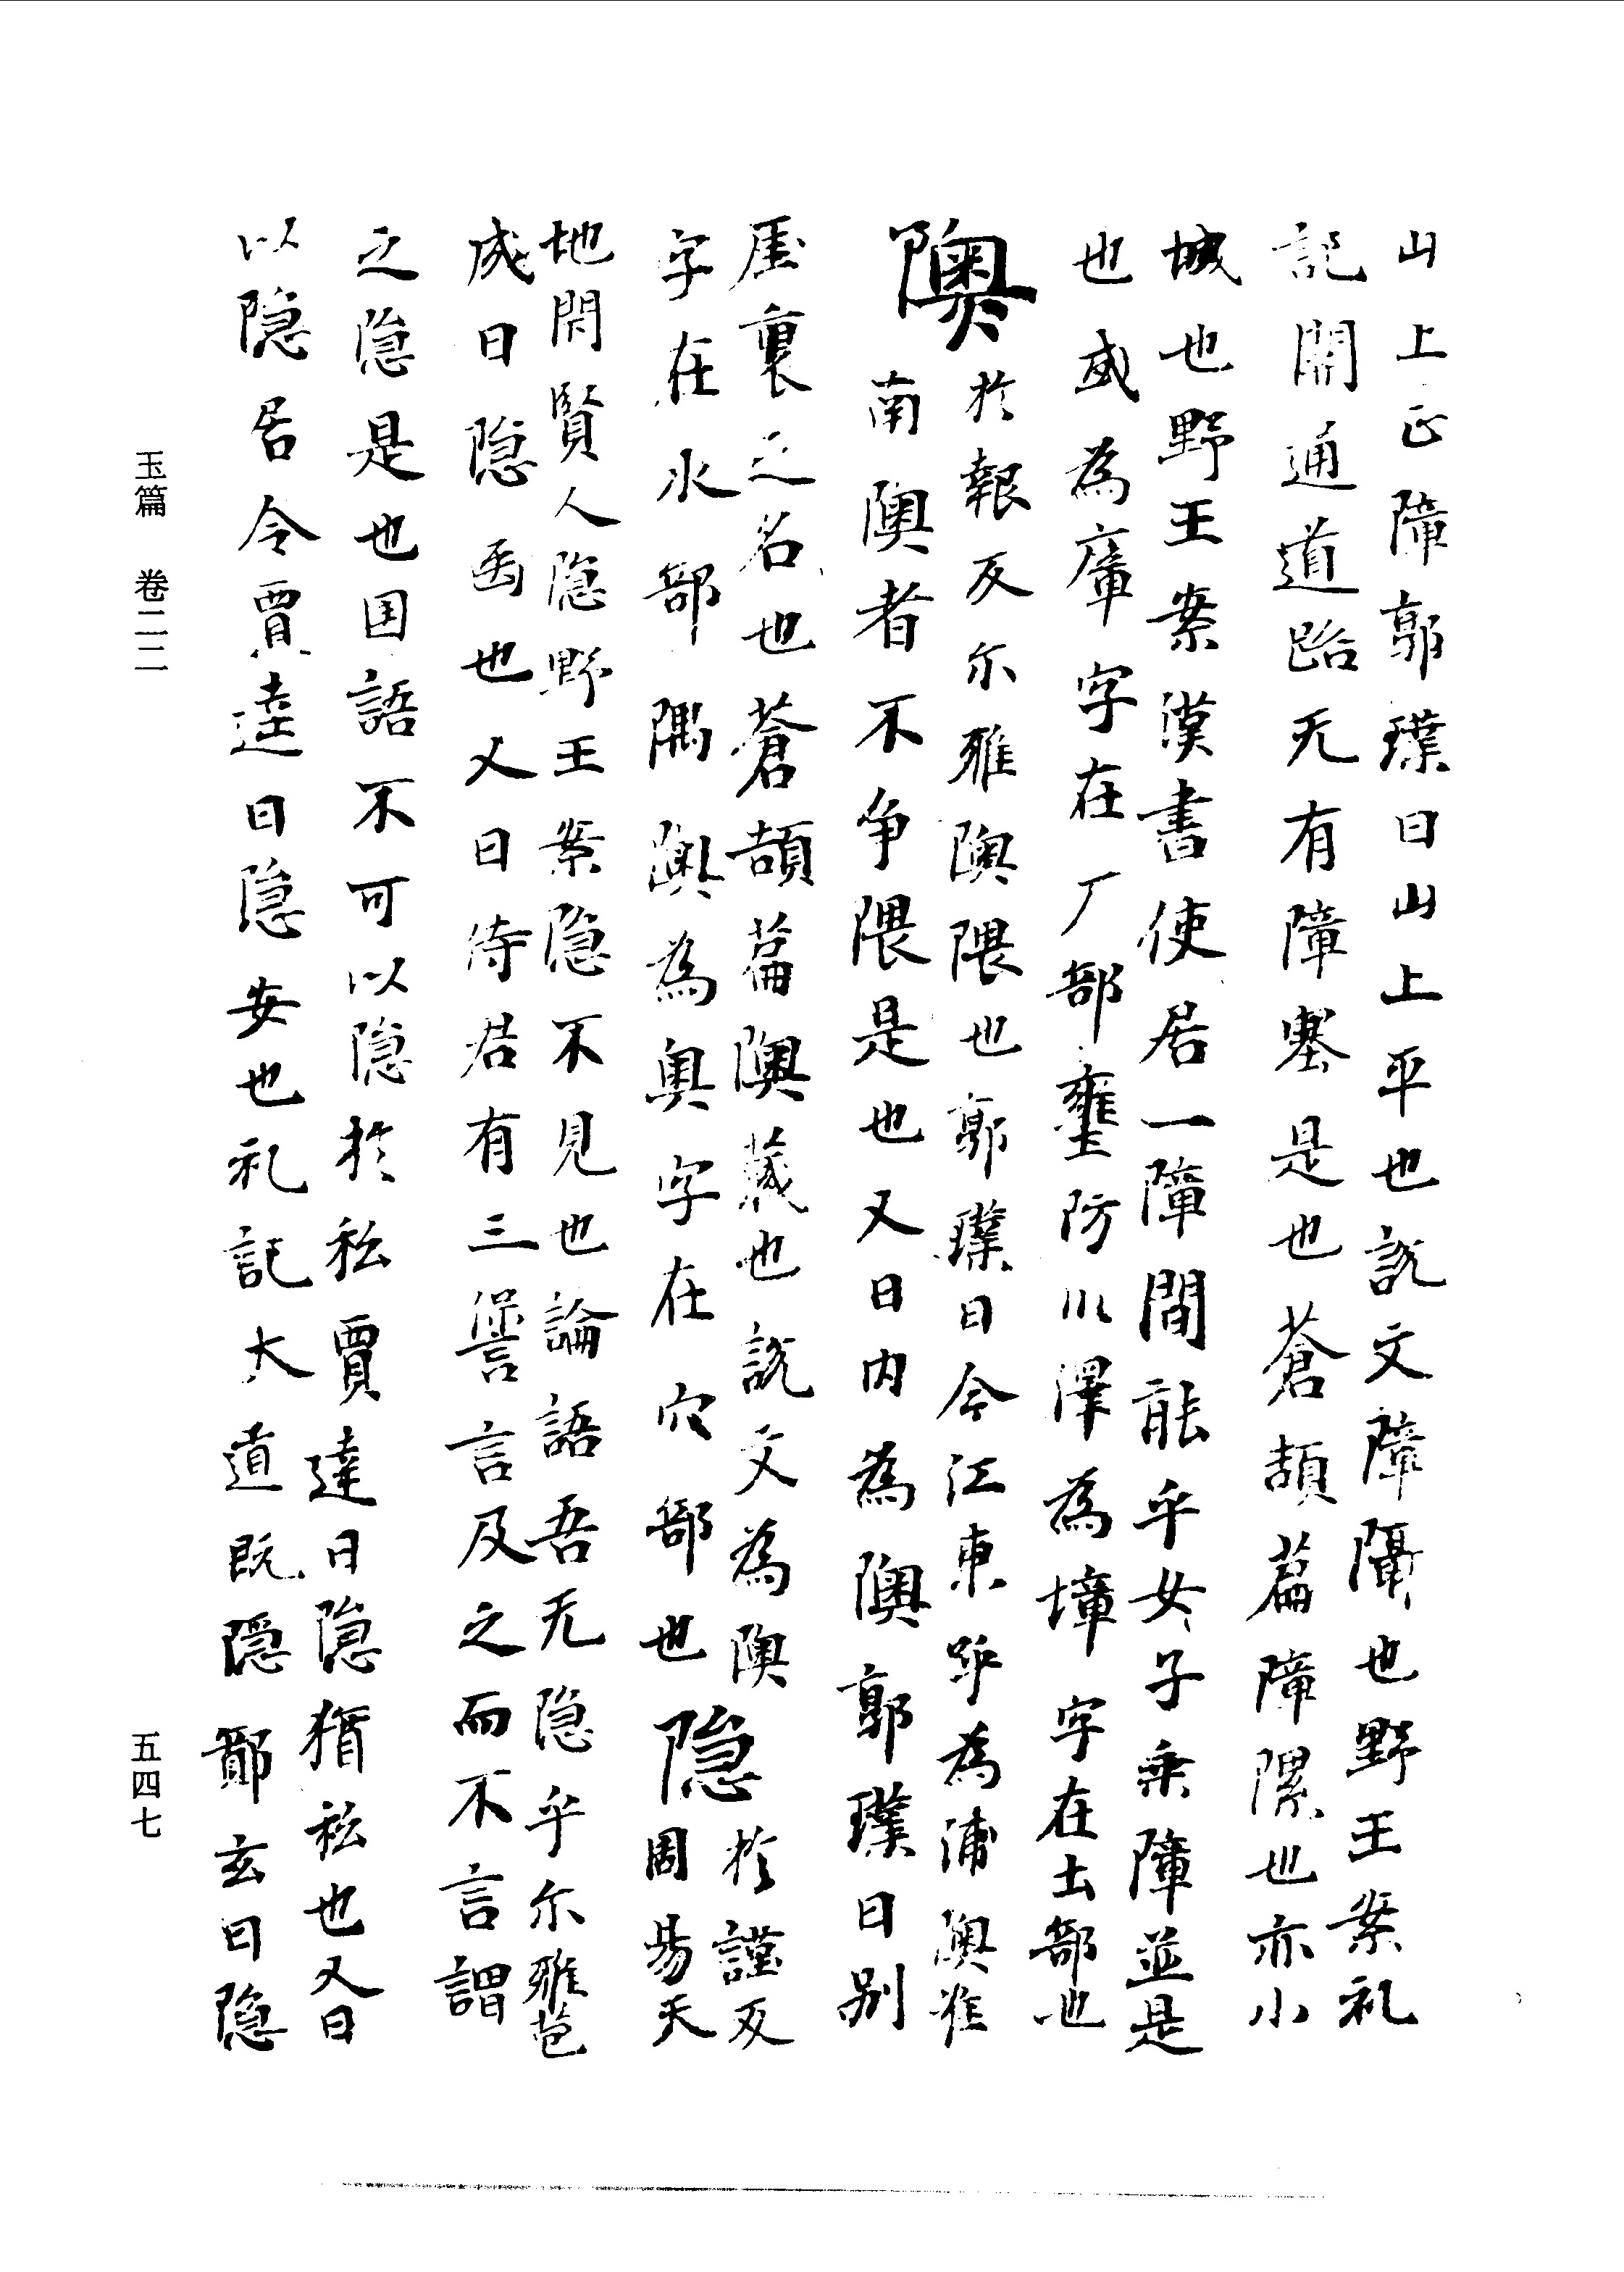 山上正障郭璞曰山上平也説文障隔也野王案礼
記開通道路无有障塞是也蒼頡篇障隱也亦小
城也野王案漢書使居一障間能乎女子乘障並是
也或為庫字在厂部壅防川澤為墇字在土部也
隩
於報反尓雅隩隈也郭璞曰今江東呼為浦澳淮
南隩者不争隈是也又曰内為隩郭璞曰别
厓裏之名也蒼頡萹隩蔵也説文為隩
字在水部隅隩為奥字在穴部也
隐
於謹反
周易天
地閇賢人隐野王案隐不見也論語吾无隐乎尓雅
成曰隐也又曰侍君有三言及之而不言謂
之隐是也国語不可以隐於私賈逵曰隐猶私也又曰
以隐居令賈逵曰隐安也礼記大道既隠鄭玄曰隐
玉篇 卷二二
五四七